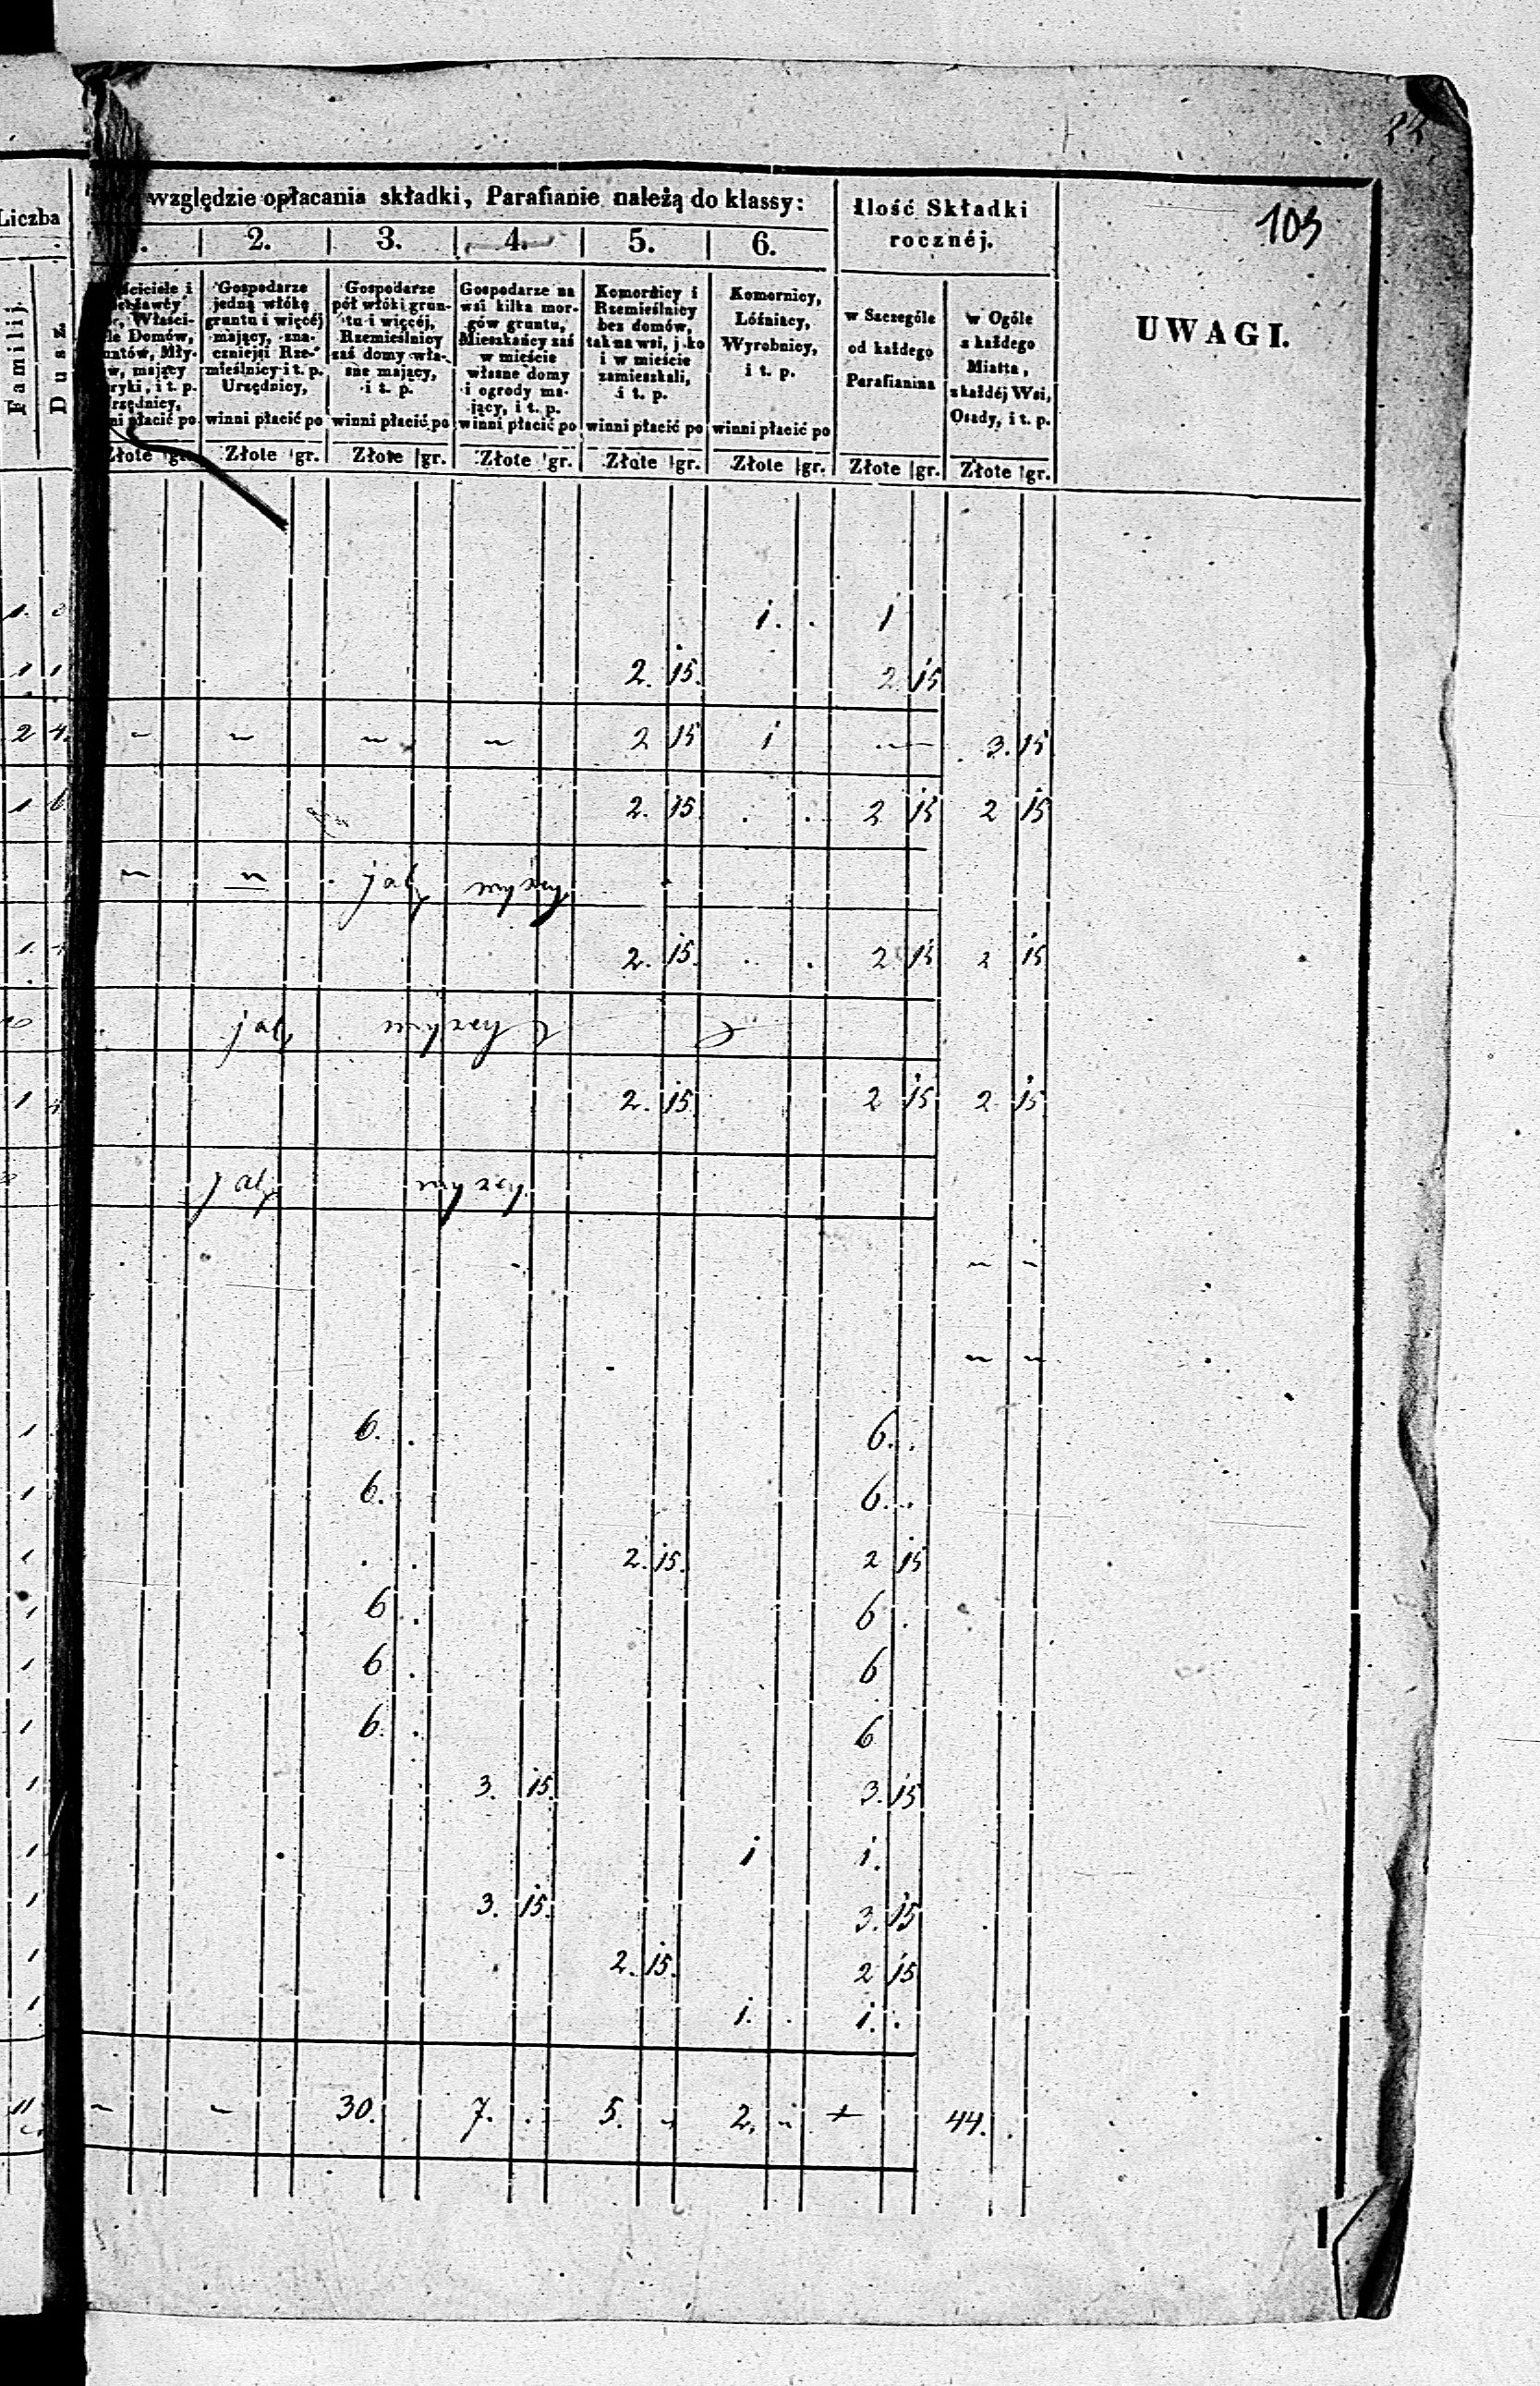 22
105
Liczba
względzie opłacania składki, Parafianie należą do klassy:
Ilość Składki
rocznéj.
UWAGI.
2. 3. 4. 5. 6.
Familij.
Dusz.
Gospodarze
jedną włókę
gruntu i więcéj
mający, zna-
czniejsi Rze-
mieślnicy i t. p.
Urzędnicy,
winni płacić po
Gospodarze
pół włóki grun-
tu i więcéj,
Rzemieślnicy
zaś domy wła-
sne mający,
i t. p.
winni płacić po
Gospodarze na
wsi kilka mor-
gów gruntu,
Mieszkańcy zaś
w mieście
własne domy
i ogrody ma-
jący, i t. p.
winni płacić po
Komornicy i
Rzemieślnicy
bez domów,
tak na wsi, jako
i w mieście
zamieszkali,
i t. p.
winni płacić po
Komornicy,
Lóźnicy,
Wyrobnicy,
i t. p.
winni płacić po
w Szczególe
od każdego
Parafianina
w Ogóle
z każdego
Miasta,
z każdéj Wsi,
Osady, i t. p.
Złote gr. Złote gr. Złote gr. Złote gr. Złote gr. Złote gr. Złote gr. Złote gr.
1. 1. 1
1 1 2. 15. 2. 15
2 4. - - - - 2 15 1 - 3. 15
1 6 2. 15 2 15 2 15
1. 2. 15. 2 15 2 15
1 2. 15. 2 15 2 15
1 6. 6.
1 6. 6.
1 2. 15. 2 15
1 6 6
1 6 6
1 6. 6
1 3. 15. 3. 15
1 1 1.
1 3. 15. 3. 15
1 2. 15. 2 15
1 1. 1.
11 - - 30. 7. 5. - 2. - + 44.